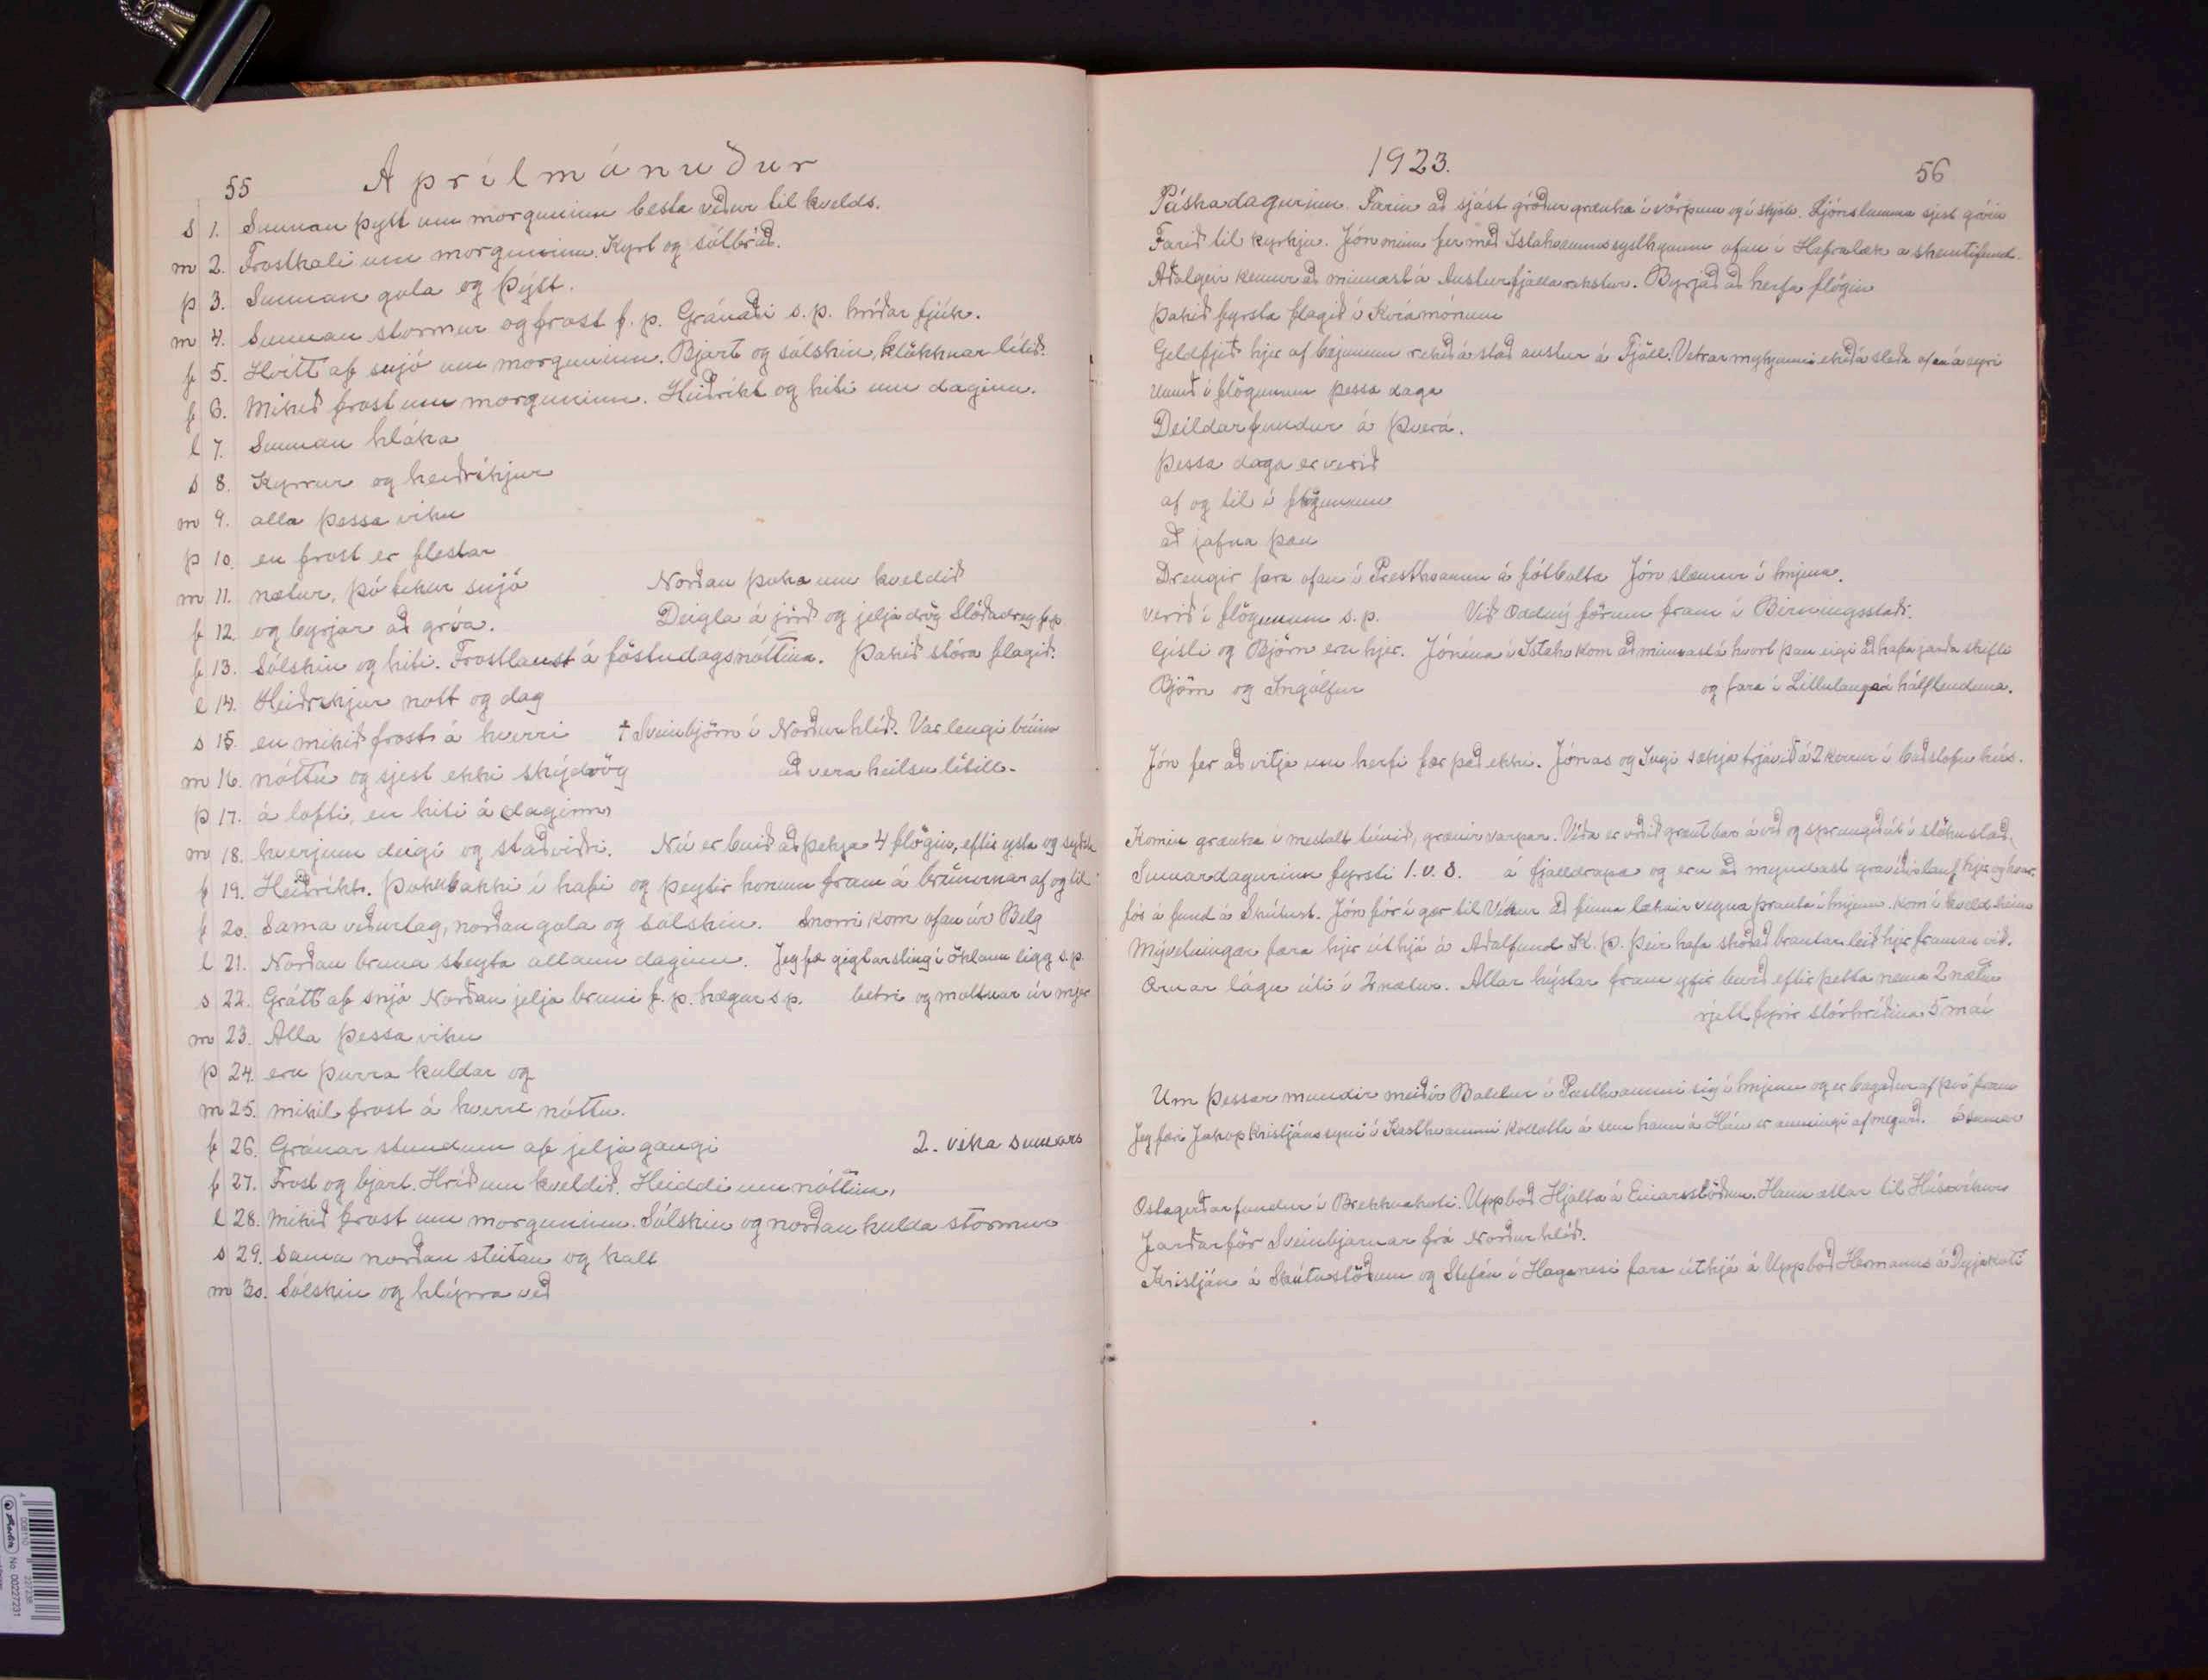 55 Aprílmánuður
s 1. Sunnan þytt um morguninn besta veður til kvelds.
m 2. Frostkali um morguninn. Kyrt og sólbráð.
þ 3. Sunnan gola og þýtt.
m 4. Sunnan stormur og frost f. p. Gránaði s. p. hríðar fjúk.
f 5. Hvítt af snjó um morguninn. Bjart og sólskin, klökknar lítið.
f 6. Mikið frost um morguninn. Heiðríkt og hiti um daginn.
l 7. Sunnan hláka
s 8. Kyrrur og heiðríkjur
m 9. alla þessa viku
þ 10. en frost er flestar
m 11. nætur, þó tekur snjó Norðan þoka um kveldið
f 12. og byrjar að gróa. Deigla á jörð og jelja drög Slóðadreg f.p.
f 13. Sólskin og hiti. Frostlaust á föstudagsnóttina. Þakið stóra flagið.
l 14. Heiðrikjur nott og dag
s 15. en mikið frost á hverri † Sveinbjörn í Norðurhlíð. Var lengi búinn
m 16. nóttu og sjest ekki skýdrög að vera heilsu lítill.
þ 17. á lofti, en hiti á daginn
m 18. hverjum deigi og staðviðri. Nú er buið að þekja 4 flögin, eftir ysta og
f 19. Heiðríkt. Þokubakki í hafi og þeytir honum fram á brúnirnar af og til
f 20. Sama veðurlag, norðan gola og sólskin. Snorri kom ofan úr Belg
l 21. Norðan bruna steyta allann daginn. Jeg fæ gigtarsting í öklann ligg s.p.
s 22. Grátt af snjó Norðan jelja bruni f. p. hægar s p. betri og moltnar úr mjer
m 23. Alla þessa viku
þ 24. eru þurra kuldar og
m 25. mikil frost á hverri nóttu.
f 26. Gránar stundum af jeljagangi 2. vika sumars
f 27. Frost og bjart. Hríð um kveldið. Heiddi um nóttina.
l 28. Mikið frost um morguninn. Sólskin og norðan kulda stormur
s 29. Sama norðan steitan og kalt
m 30. Sólskin og hlýrra veð
1923. 56
Páskadagurinn. Farin að sjást gróður grænka í vörpum og í skjóli. sjest gróin
Farið til kyrkju. Jón minn fer með Istahvammssystkynum ofan í Hafralæk a skemtifund.
Aðalgeir kemur að minnast á Austurfjallarekstur. Byrjað að herfa flögin
Þakið fyrsta flagið í Kvíamónum
Geldfjeð hjer af bæjunum rekið á stað austur á Fjöll. Vetrarmykjunni ekið á sleða ofan á eyri
Unnið í flögunum þessa daga
Deildarfundur á Þverá.
Þessa daga er verið
af og til í flögunum
að jafna þau
Drengir fara ofan í Presthvamm á fótbolta Jón slæmur í hnjenu.
verið í flögunum s.p. Við Oddný förum fram í Birningsstaði.
Gísli og Björn eru hjer. Jónína í Ístahv kom að minnast á hvort þau eigi að hafa jarða skifti
Björn og Ingólfur og fara í Litlulauga á hálflenduna.
Jón fer að vitja um herfi fær það ekki. Jónas og Ingi sækja trjávið á 2 kerrur í baðstofu hús.
Komin grænka í mestalt túnið, grænir varpar. Víða er viðið grænt bar á við og sprungið út í stöku stað,
Sumardagurinn fyrsti 1. v. s. á fjalldrapa og eru að myndast grávíðirlauf hjer og hvar.
fór á fund á Skútust. Jón fór í gær til Víkur að finna læknir vegna þrauta í hnjenu. Kom í kveld heim
Mývetningar fara hjer úthjá á Aðalfund K. Þ. Þeir hafa skoðað brautarleið hjer framan við.
Ærnar lágu úti í 2 nætur. Allar hýstar fram yfir burð eftir þetta nema 2 nætur
rjett fyrir stórhríðina 5 maí
Um þessar mundir meiðir Baldur í Presthvammi sig í hnjenu og er bagaður af því fram
Jeg færi Jakop Kristjánssyni í Kasthvammi Kollótta á sem hann á Hún er aumingi af megurð.
Ostagerðarfundur í Brekknakoti. Uppboð Hjalta á Einarsstöðum. Hann ætlar til Húsavíkur
Jarðarför Sveinbjarnar frá Norðurhlíð.
Kristján á Skútustöðum og Stefán í Haganesi fara úthjá á Uppboð Hermanns á